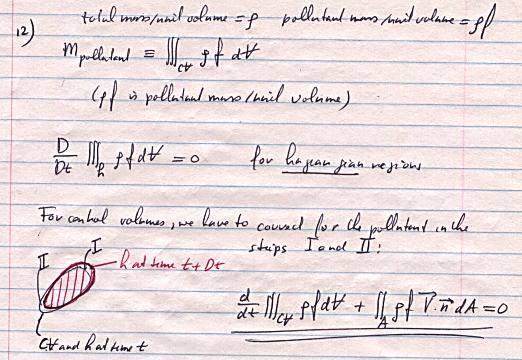 12) total mass/unit volume = ρ pollutant mass/unit volume = ρf
M pollutant ≡ ∭_CV ρf dV
(ρf is pollutant mass/unit volume)
D/Dt ∭_R ρf dV = 0 for Lagrangian regions
For control volumes, we have to correct for the pollutant in the
strips I and II:
II I
R at time t + Dt
d/dt ∭_CV ρf dV + ∬_A ρf V⃗·n⃗ dA = 0
CV and R at time t